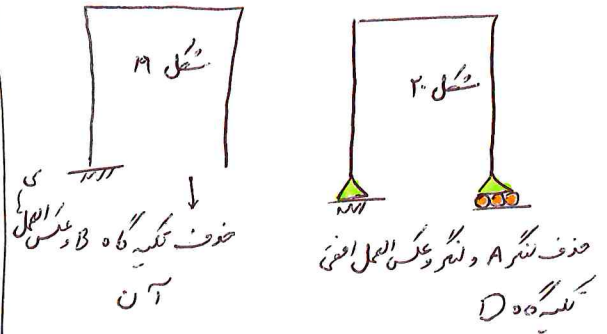 شکل ۱۹
حذف تکیه گاه B و عکس العمل های
آن
شکل ۲۰
حذف لنگر A و لنگر و عکس العمل افقی
تکیه گاه D